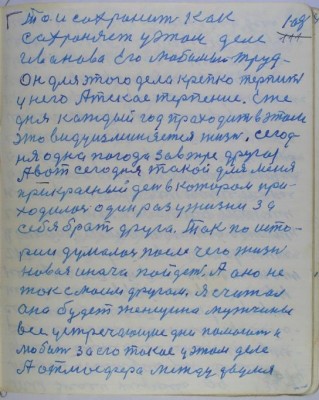 То и сохранит как
сохраняет в этом деле
Иванова Его любимый труд.
Он для этого дела крепко терпит
у него Атское терпение. Еже
дня каждый год проходит в этом
это виду изменяется жизн. сегод-
ня одна погода завтра другая
А вот сегодня такой для меня
прекрасный ден в котором при-
ходилось один раз у жизни за
себя брат друга. Так по исто-
рии думалос после чего жизн
новая иначе пойдет. А оно не
так с моим другом. Я считал
она будет женщина мужчины
все встречающие дни помогать и
любить за его такое у этом деле
А атмосфера между двумя